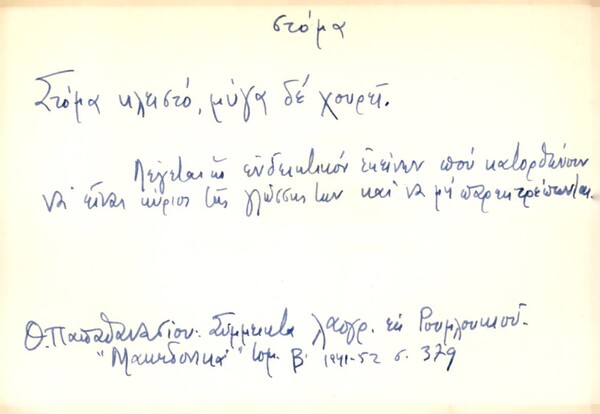 στόμα
Στόμα κλειστό, μύγα δέ χουρεῖ.
Λέγεται ὡς ἐνδεικτικόν ἐκείνων πού κατορθώνουν
νά εἶναι κύριοι τῆς γλώσσης των καί νά μή παρεκτρέπωνται.
Θ. Παπαθανασίου: Σύμμεικτα λαογρ. ἐκ Ρουμλουκιοῦ.
"Μακεδονικά" τομ. Β' 1941-52 σ. 379